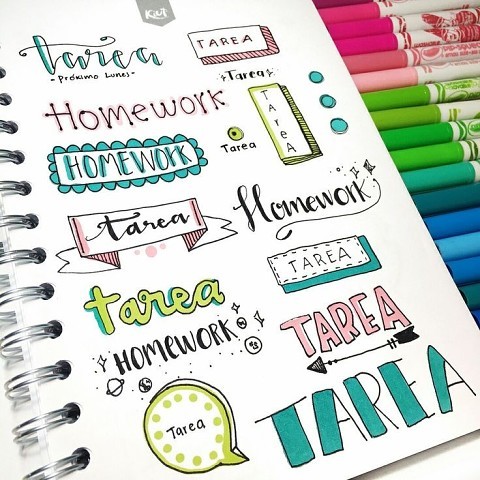 KIUT
tarea
- Próximo Lunes -
TAREA
Tarea
HOMEWORK
TAREA
Tarea
HOMEWORK
tarea
Homework
TAREA
tarea
HOMEWORK
TAREA
Tarea
TAREA